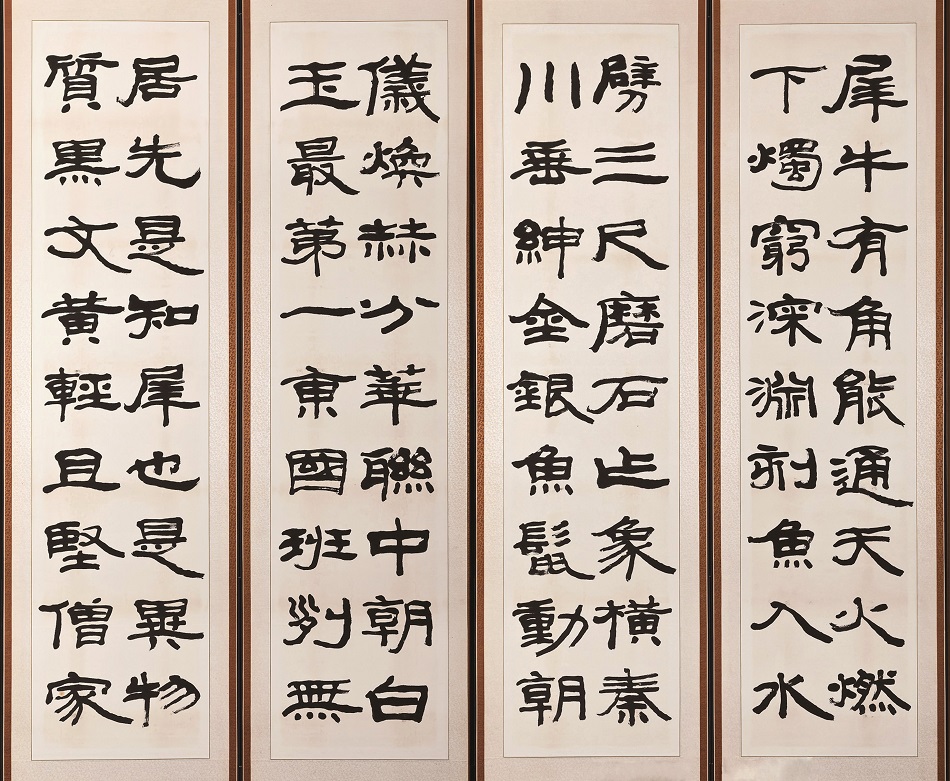 犀牛有角能通天火燃
下燭窮深淵刻魚入水
劈三尺磨石止象橫秦
川垂紳金銀魚鬣動朝
儀煥赫分華聯中朝白
玉最第一東國班列無
居先是知犀也是異物
質黑文黃輕且堅僧家